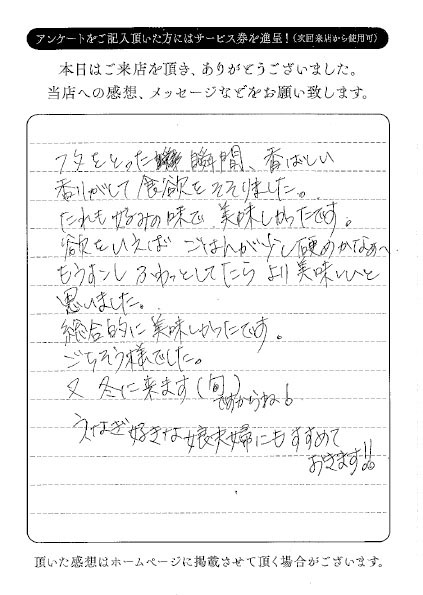 アンケートをご記入頂いた方にはサービス券を進呈！(次回来店から使用可)
本日はご来店を頂き、ありがとうございました。
当店への感想、メッセージなどをお願い致します。
フタをとった瞬間、香ばしい
香りがして食欲をそそりました。
たれも好みの味で美味しかったです。
欲をいえばごはんが少し硬めかなぁへ
もう少しふわっとしてたらより美味しいと
思いました。
総合的に美味しかったです。
ごちそう様でした。
又冬に来ます(旬)
ですからね!
うなぎ好きな娘夫婦にもすすめて
おきます!!
頂いた感想はホームページに掲載させて頂く場合がございます。